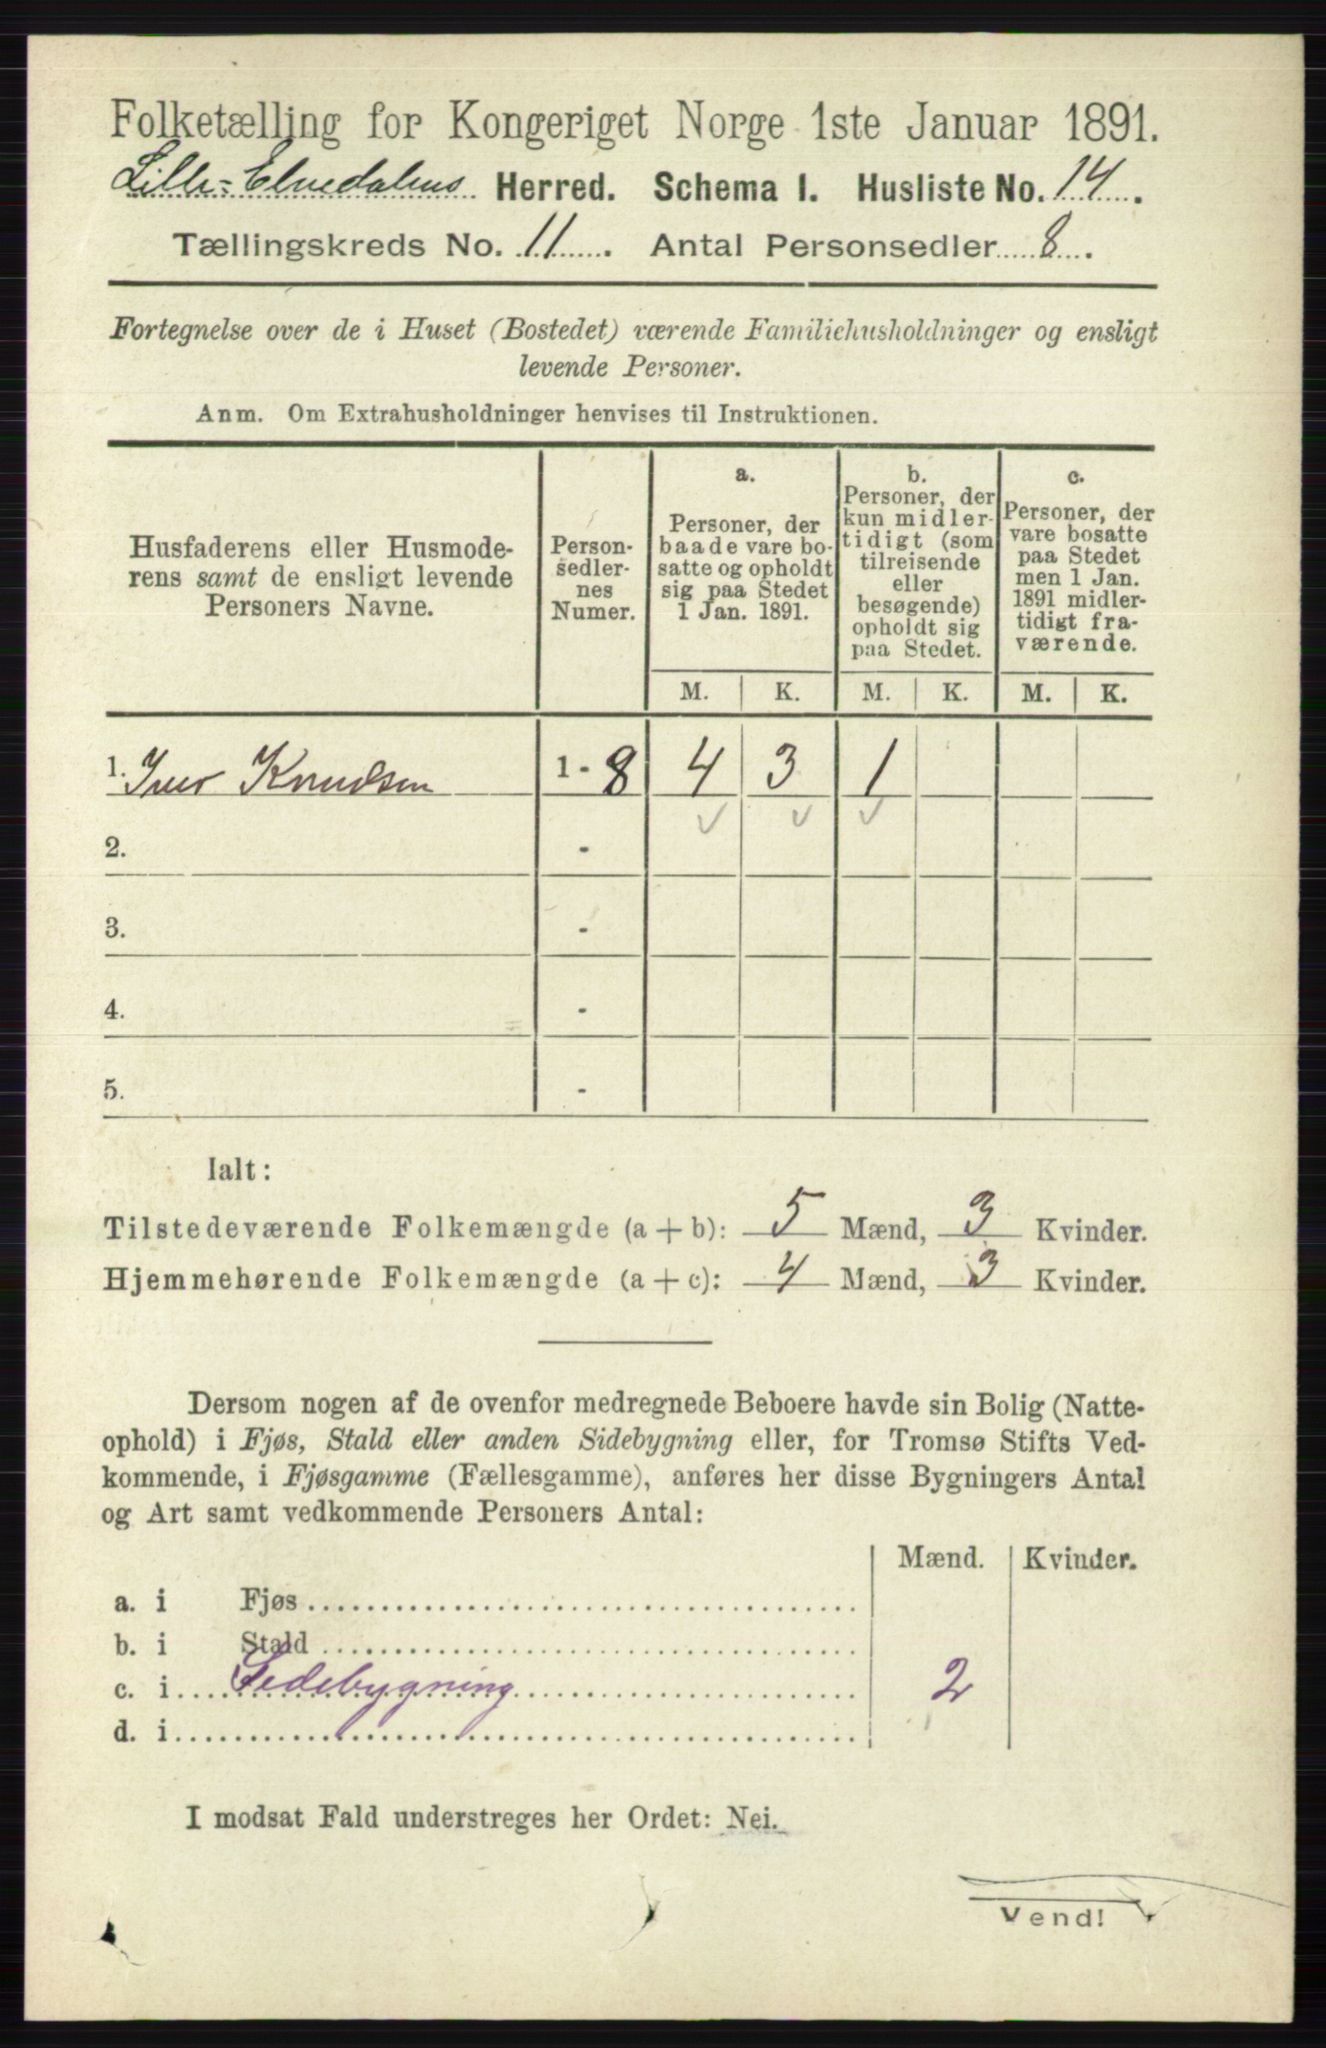 Folketælling for Kongeriget Norge 1ste Januar 1891.
Lille-Elvedalens Herred. Schema I. Husliste No. 14.
Tællingskreds No. 11. Antal Personsedler 8.
Fortegnelse over de i Huset (Bostedet) værende Familiehusholdninger og ensligt
levende Personer.
Anm. Om Extrahusholdninger henvises til Instruktionen.
Husfaderens eller Husmode-
rens samt de ensligt levende
Personers Navne.
Person-
sedler-
nes
Numer.
a.
Personer, der
baade vare bo-
satte og opholdt
sig paa Stedet
1 Jan. 1891.
b.
Personer, der
kun midler-
tidigt (som
tilreisende
eller
besøgende)
opholdt sig
paa Stedet.
c.
Personer, der
vare bosatte
paa Stedet
men 1 Jan.
1891 midler-
tidigt fra-
værende.
M. K. M. K. M. K.
1. Iver Knudsen 1 - 8 4 3 1
2. -
3. -
4. -
5. -
Ialt:
Tilstedeværende Folkemængde (a + b): 5 Mænd, 3 Kvinder.
Hjemmehørende Folkemængde (a + c): 4 Mænd, 3 Kvinder.
Dersom nogen af de ovenfor medregnede Beboere havde sin Bolig (Natte-
ophold) i Fjøs, Stald eller anden Sidebygning eller, for Tromsø Stifts Ved-
kommende, i Fjøsgamme (Fællesgamme), anføres her disse Bygningers Antal
og Art samt vedkommende Personers Antal:
Mænd. Kvinder.
a. i Fjøs
b. i Stald
c. i Sidebygning 2
d. i
I modsat Fald understreges her Ordet: Nei.
Vend!